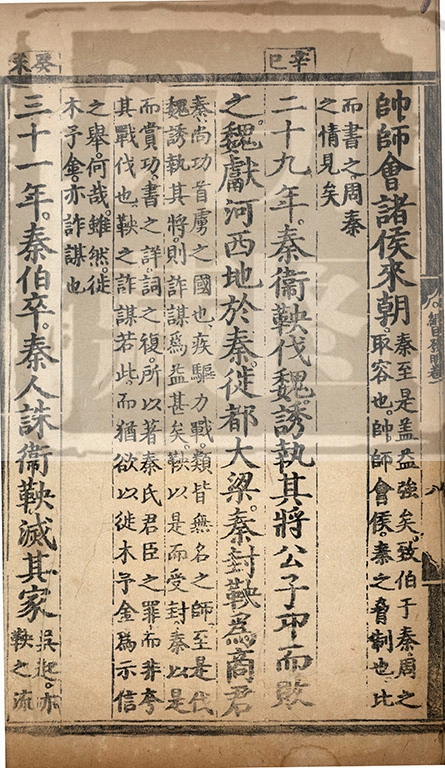 辛巳
癸未
帥師會諸侯來朝
秦至是盖益強矣。致伯于秦。周之
取容也。帥師會侯。秦之脅制也。比
而書之。周秦
之情見矣
二十九年。秦衞鞅伐魏。誘執其將公子卬而敗
之。魏獻河西地於秦。徙都大梁。秦封鞅爲商君
秦尚功首虜之國也。疾驅力戰。類皆無名之師。至是伐
魏誘執其將。則詐謀爲益甚矣。鞅以是而受封。秦以是
而賞功。書之詳。詞之復。所以著秦氏君臣之罪而非夸
其戰伐也。鞅之詐謀若此。而猶欲以徙木予金爲示信
之舉。何哉。雖然。徙
木予金。亦詐謀也
三十一年。秦伯卒。秦人誅衞鞅滅其家
吳起。亦
鞅之流
八